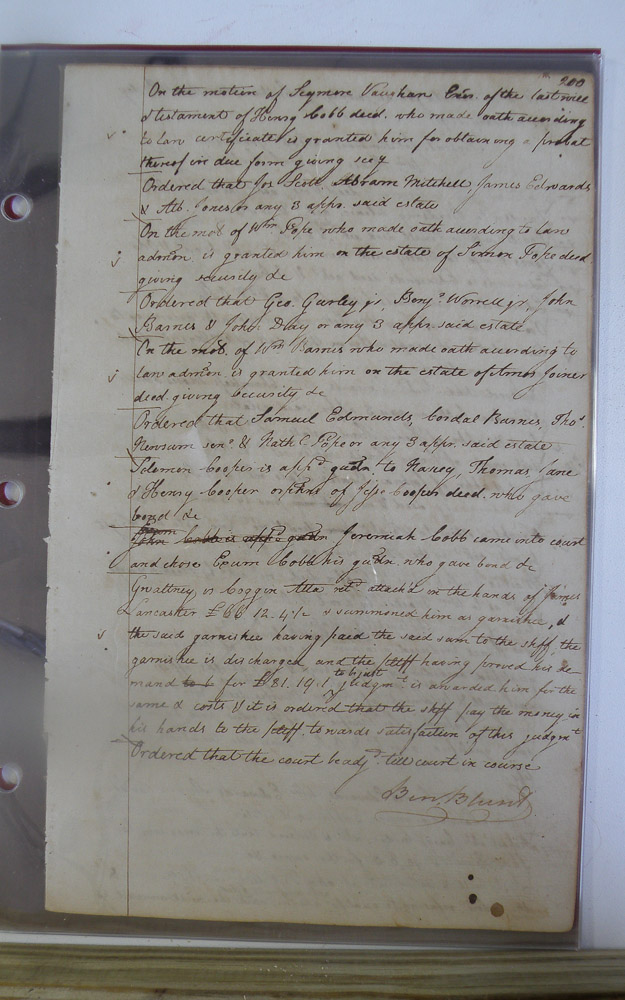 200
On the motion of Seymore Vaughan Exr. of the last will
& testament of Henry Cobb deed. who made oath according
to law certificate is granted him for obtaining a probat
thereof in due form giving secy
Ordered that Jos Scott, Abram Mitchell James Edwards
& Alb. Jones or any 3 appr. said estate
On the mot. of Wm Pope who made oath according to law
admon. is granted him on the estate of Simon Pope deed
giving security &c
Ordered that Geo. Gurley jr, Benja. Worrell jr, John
Barnes & John Day or any 3 appr. said estate
On the mot. of Wm Barnes who made oath according to
law admon is granted him on the estate of Amos Joiner
deed giving security &c
Ordered that Samuel Edmunds, Cordal Barnes, Thos.
Newsum senr. & Nath C. Pope or any 3 appr. said estate
Solomon Cooper is appd. gudn. to Haney, Thomas Jane
& Henry Cooper orphans of Jesse Cooper deed. who gave
bond &c
John Cobb is appd. gudn Jeremiah Cobb came into court
and chose Exum Cobb his gudn. who gave bond &c
Gwaltney vs Coggin Atta. retd. attach'd in the hands of James
Lancaster £86.12.4½ & summoned him as garnishee, &
the said garnishee having paid the said sum to the shff, the
garnishee is discharged, and the pltff having proved his de-
mand to b for £81.19.1 to be just judgmt. is awarded him for the
same & costs & it is ordered that the shff pay the money in
his hands to the pltff. towards satisfaction of this judgmt
Ordered that the court be adjd. till court in course
Ben. Blunt